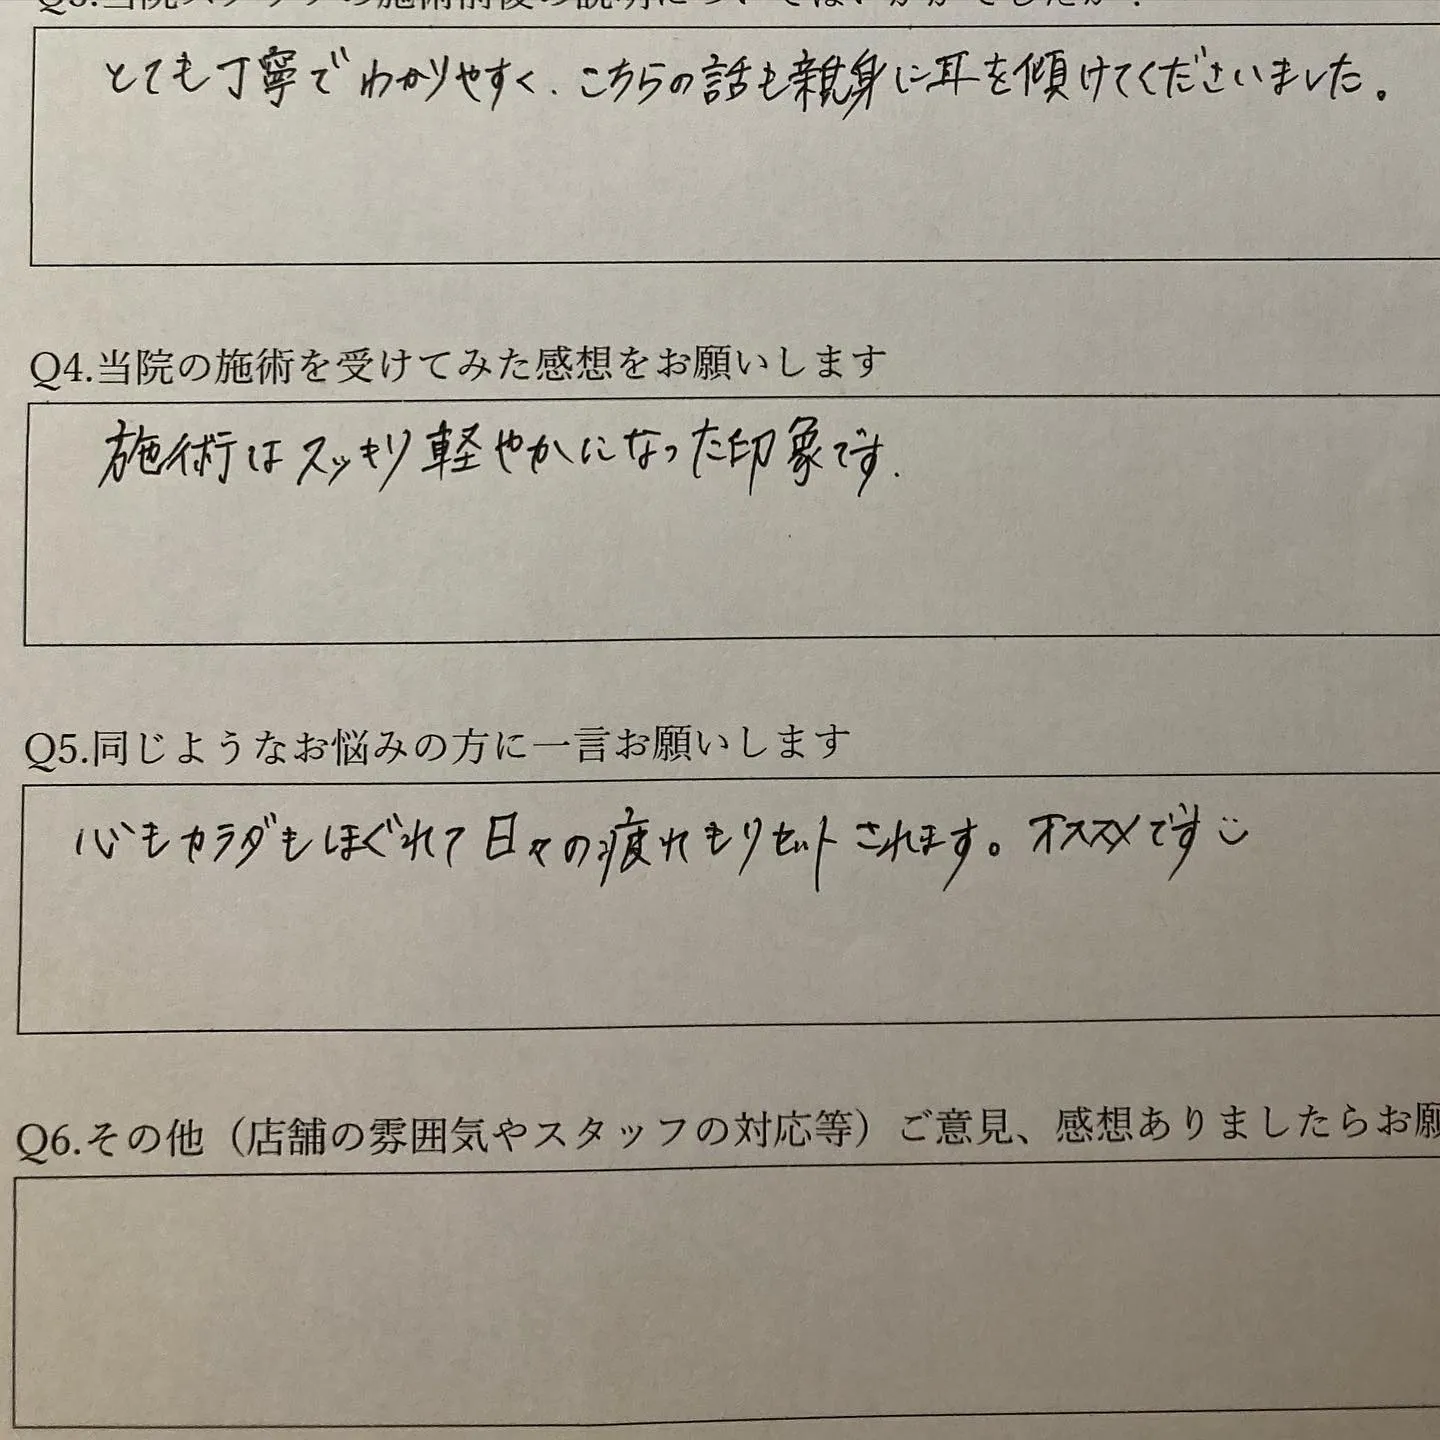 Q3.当院スタッフの施術前後の説明についてはいかがでしたか？
とても丁寧でわかりやすく、こちらの話も親身に耳を傾けてくださいました。
Q4.当院の施術を受けてみた感想をお願いします
施術はスッキリ軽やかになった印象です.
Q5.同じようなお悩みの方に一言お願いします
心もカラダもほぐれて日々の疲れもリセットされます。オススメです
Q6.その他（店舗の雰囲気やスタッフの対応等）ご意見、感想ありましたらお願